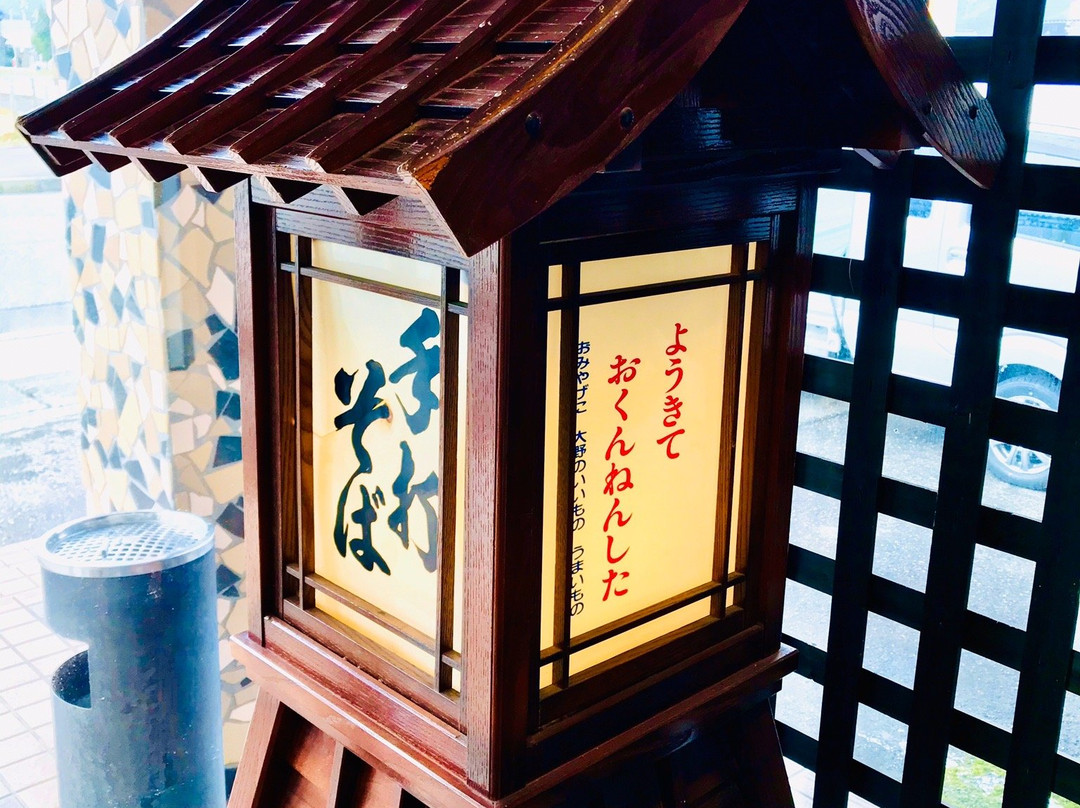 手打
そば
ようきて
おくんねんした
おみやげに 大野のいいもの うまいもの